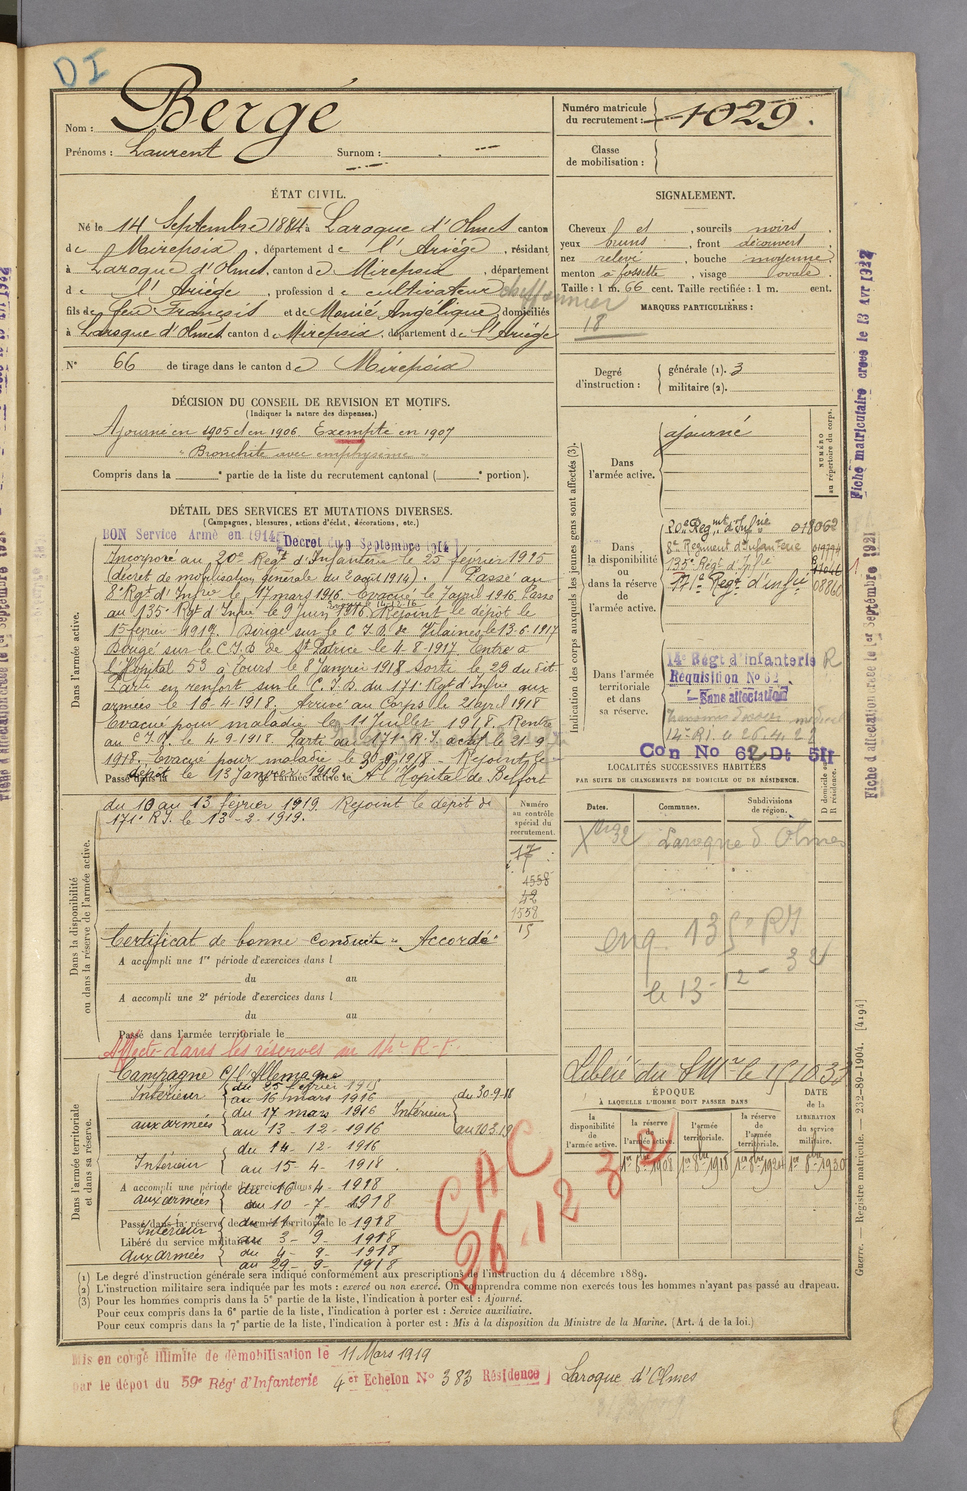 DI
Nom : Bergé
Prénoms : Laurent Surnom :
Numéro matricule du recrutement : 1029.
Classe de mobilisation :
ÉTAT CIVIL.
Né le 14 Septembre 1884 à Laroque d'Olmes canton
de Mirepoix, département de l'Ariège, résidant
à Laroque d'Olmes, canton de Mirepoix, département
de l'Ariège, profession de cultivateur chiffonnier
fils de feu François et de Manié Angélique, domiciliés
à Laroque d'Olmes canton de Mirepoix, département de l'Ariège
N° 66 de tirage dans le canton de Mirepoix
SIGNALEMENT.
Cheveux et, sourcils noirs,
yeux bruns, front découvert,
nez relevé, bouche moyenne,
menton à fossette, visage ovale.
Taille : 1 m. 66 cent. Taille rectifiée : 1 m. cent.
MARQUES PARTICULIÈRES :
18
Degré d'instruction : générale (1). 3
militaire (2).
DÉCISION DU CONSEIL DE REVISION ET MOTIFS.
(Indiquer la nature des dispenses.)
Ajourné en 1905 et en 1906. Exempté en 1907
"Bronchite avec emphysème"
Compris dans la e partie de la liste du recrutement cantonal ( e portion).
DÉTAIL DES SERVICES ET MUTATIONS DIVERSES.
(Campagnes, blessures, actions d'éclat, décorations, etc.)
BON Service Armé en 1914 Décret du 9 Septembre 1914
Dans l'armée active.
Incorporé au 20e Regt d'Infanterie le 25 février 1915
(décret de mobilisation générale du 2 août 1914). Passé au
8e Rgt d'Infrie le 17 mars 1916. Evacué le 7 avril 1916. Passé
au 135e Rgt d'Infrie le 9 Juin 1916. Rejoint le dépôt le
15 février 1917. Dirigé sur le C.I.D. de Vilaines le 13.6.1917
Dirigé sur le C.I.D. de St Patrice le 4-8-1917. Entré à
l'Hôpital 53 à Tours le 8 Janvier 1918 Sorti le 29 du dit
Parti en renfort sur le C.I.D. du 171e Rgt d'Infrie aux
armées le 16-4-1918. Arrivé au Corps le 21 avril 1918
Evacué pour maladie le 11 Juillet 1918. Rentré
au C.I.D. le 4-9-1918. Parti au 171e R.I. actif le 21-9
1918. Evacué pour maladie le 30-9-1918 - Rejoint le
dépôt le 13 Janvier 1919. A l'Hopital de Belfort
Passé dans la de l'armée active le
du 10 au 13 février 1919. Rejoint le dépôt de
171e RI. le 13-2-1919.
Numéro au contrôle spécial du recrutement.
17
4558
42
1558
15
Dans la disponibilité ou dans la réserve de l'armée active.
Certificat de bonne conduite "Accordé"
A accompli une 1re période d'exercices dans l
du au
A accompli une 2e période d'exercices dans l
du au
Passé dans l'armée territoriale le
Affecté dans les réserves au 14e R.I.
Dans l'armée territoriale et dans sa réserve.
Campagne c/ l'Allemagne
Intérieur du 25 février 1915
au 16 mars 1916
aux armées du 17 mars 1916
au 13-12-1916
Intérieur du 30-9-18
au 10.3.19
Intérieur du 14-12-1916
au 15-4-1918
A accompli une période d'exercices dans l
aux armées du 16-4-1918
au 10-7-1918
Passé dans la réserve de l'armée territoriale le
Intérieur du 11-7-1918
Libéré du service militaire le
au 3-9-1918
aux armées du 4-9-1918
au 29-9-1918
CAC
26.12 32
Indication des corps auxquels les jeunes gens sont affectés (3).
NUMÉRO au répertoire du corps.
Dans l'armée active.
ajourné
Dans la disponibilité ou dans la réserve de l'armée active.
20e Regmt d'Infrie 018062
8e Régiment d'Infanterie
135e Regt d'Infie
171e Regt d'infie 08860
Dans l'armée territoriale et dans sa réserve.
14e Régt d'infanterie R
Réquisition No 62
Sans affectation
14e RI. le 26.4.22
Con No 62 Dt 5II
LOCALITÉS SUCCESSIVES HABITÉES
PAR SUITE DE CHANGEMENTS DE DOMICILE OU DE RÉSIDENCE.
Dates. Communes. Subdivisions de région. D domicile ou R résidence.
Xbre 32 Laroque d'Olmes
enq. 135e RI
le 13-12-32
Libéré du SMre le 15 10 33
ÉPOQUE
À LAQUELLE L'HOMME DOIT PASSER DANS
DATE de la LIBERATION du service militaire.
la disponibilité de l'armée active. la réserve de l'armée active. l'armée territoriale. la réserve de l'armée territoriale.
1er 8bre 1908 1er 8bre 1918 1er 8bre 1924 1er 8bre 1930
(1) Le degré d'instruction générale sera indiqué conformément aux prescriptions de l'instruction du 4 décembre 1889.
(2) L'instruction militaire sera indiquée par les mots : exercé ou non exercé. On comprendra comme non exercés tous les hommes n'ayant pas passé au drapeau.
(3) Pour les hommes compris dans la 5e partie de la liste, l'indication à porter est : Ajourné.
Pour ceux compris dans la 6e partie de la liste, l'indication à porter est : Service auxiliaire.
Pour ceux compris dans la 7e partie de la liste, l'indication à porter est : Mis à la disposition du Ministre de la Marine. (Art. 4 de la loi.)
Mis en congé illimité de démobilisation le 11 Mars 1919
par le dépôt du 59e Régt d'Infanterie 4er Echelon No 383 Résidence Laroque d'Olmes
Fiche matriculaire créée le 13 Avr 1932
Fiche d'affectation créée le 1er Septembre 1921
Guerre. — Registre matricule. — 232-89-1904. [4194]